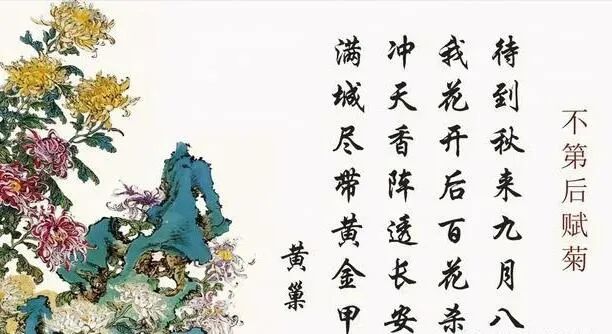 不第后赋菊
待到秋来九月八
我花开后百花杀
冲天香阵透长安
满城尽带黄金甲
黄巢